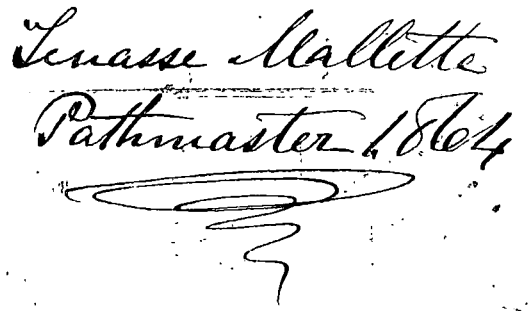 Tenasse Mallette
Pathmaster 1864